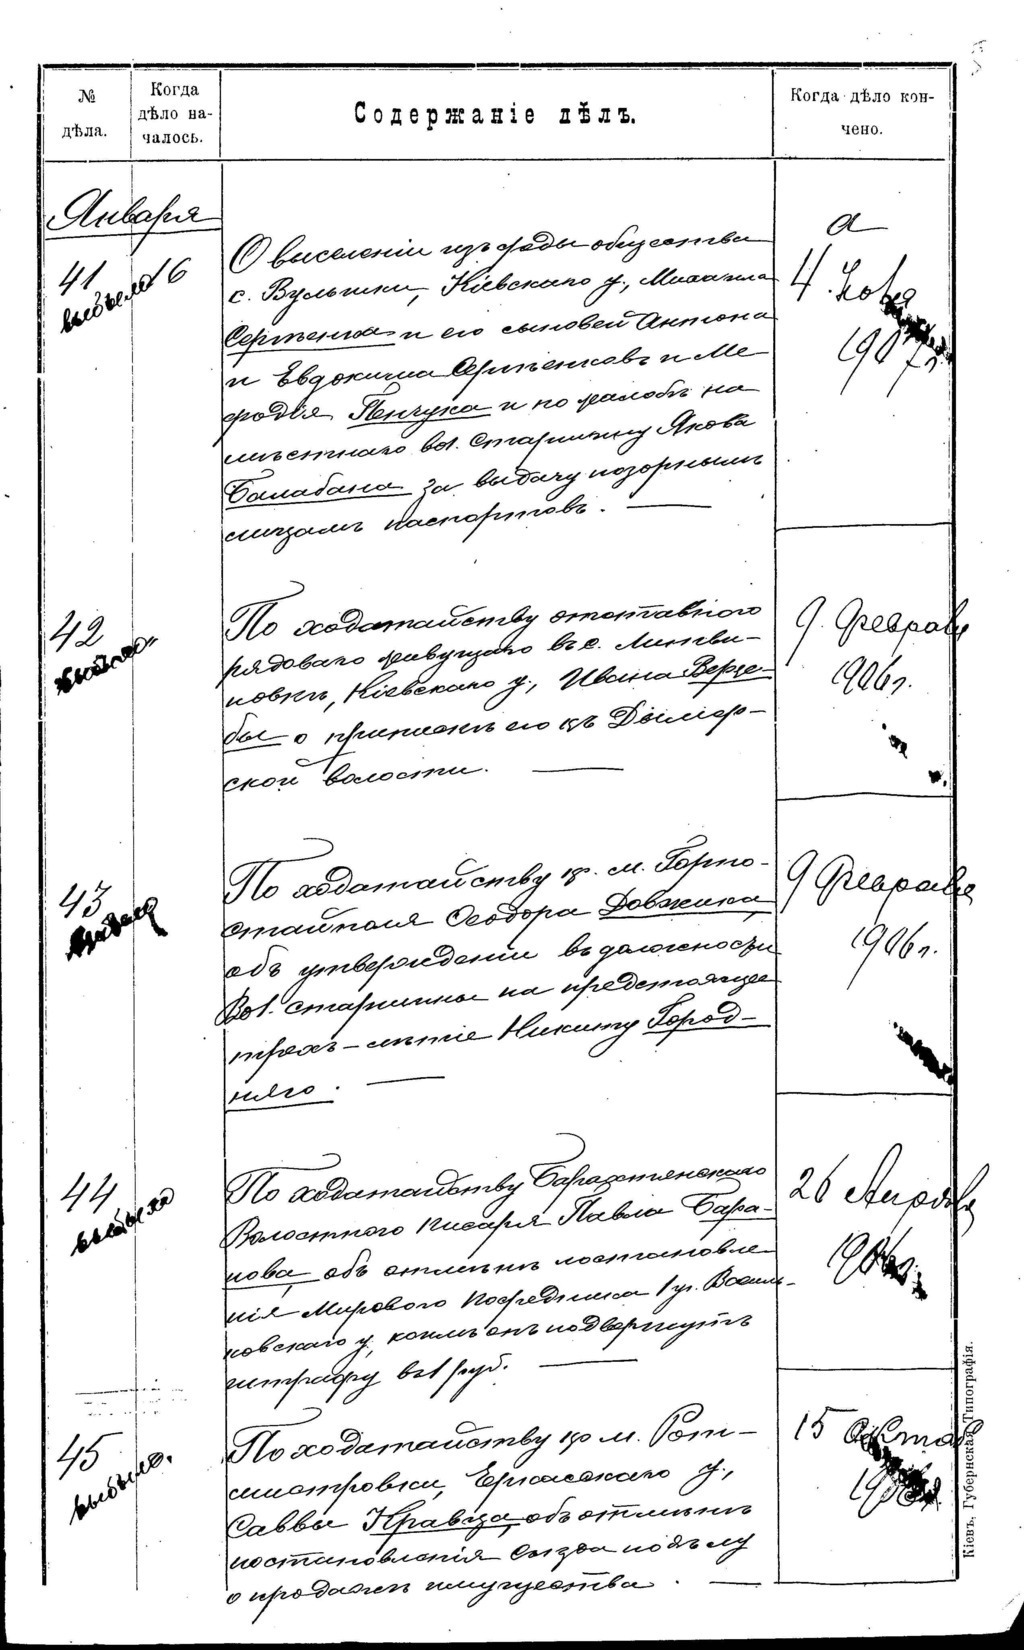 № дѣла.
Когда дѣло началось.
Содержаніе дѣлъ.
Когда дѣло кончено.
Января
41
выбыло
16
О выселеніи изъ среды общества
с. Вульшки, Кіевскаго у., Михаила
Сергіенка и его сыновей Антона
и Евдокима Сергіенковъ и Ме
фодія Пенчука и по жалобѣ на
мѣстнаго вол. Старшину Якова
Балабана за выдачу позорнымъ
лицамъ паспортовъ.
4
1907г.
42
выбыло
По ходатайству отставного
рядового живущаго въ с. Литви-
новкѣ, Кіевскаго у., Ивана Верже-
бы о припискѣ его къ Дымер-
ской волости.
9. Февраля
1906г.
43
По ходатайству кр. м. Горно-
стайполя Ѳеодора Довжика,
объ утвержденіи въ должности
Вол. старшины на предстоящее
трехъ-лѣтіе Никиту Город-
няго.
9 Февраля
1906г.
44
выбыло
По ходатайству Барахтянскаго
Волостного писаря Павла Бара-
нова, объ отмѣнѣ постановле
нія Мирового посредника 1 уч. Василь-
ковскаго у, коимъ онъ подвергнутъ
штрафу въ 1 руб.
26 Апрѣля
1906г.
45
выбыло.
По ходатайству кр м. Рот-
мистровки, Черкасскаго у.,
Саввы Кравца, объ отмѣнѣ
постановленія Съѣзда по дѣлу
о продажѣ имущества.
15
Кіевъ, Губернская Типографія.